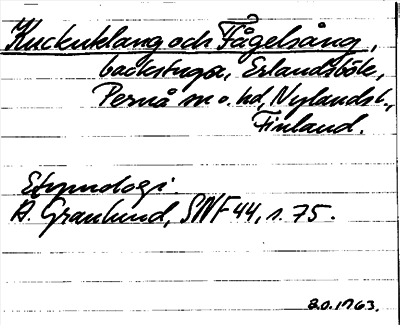 Kuckuklang och Fågelsång,
backstugor, Erlandsböle,
Pernå sn o. hd, Nylandsl.,
Finland.
Etymologi.
Å. Granlund, SNF 44, s. 75.
20.1763.